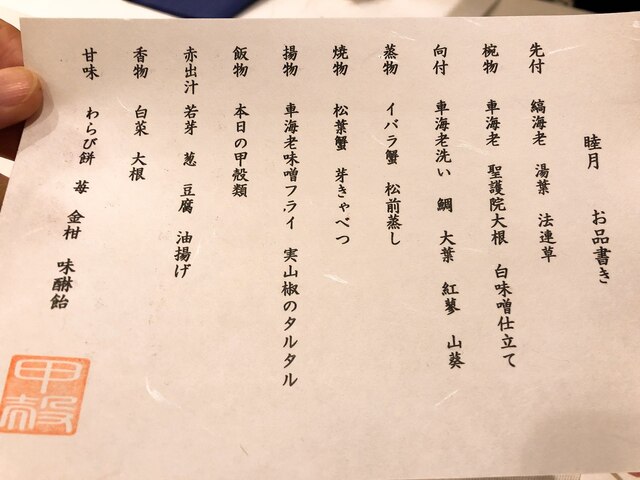 睦月　お品書き
先付　縞海老　湯葉　法連草
椀物　車海老　聖護院大根　白味噌仕立て
向付　車海老洗い　鯛　大葉　紅蓼　山葵
蒸物　イバラ蟹　松前蒸し
焼物　松葉蟹　芽きゃべつ
揚物　車海老味噌フライ　実山椒のタルタル
飯物　本日の甲殻類
赤出汁　若芽　葱　豆腐　油揚げ
香物　白菜　大根
甘味　わらび餅　苺　金柑　味醂飴
甲殻